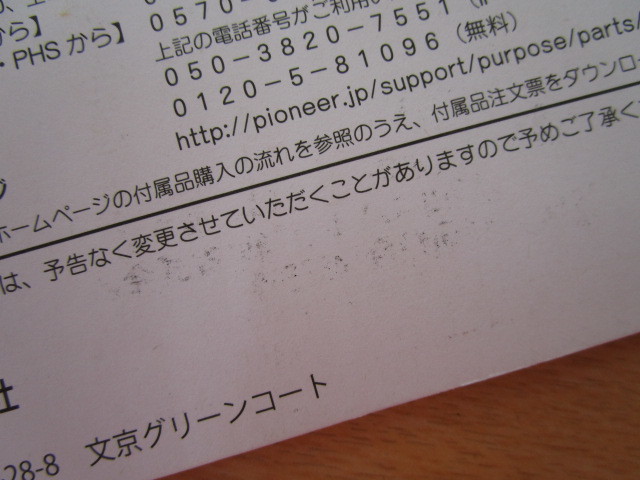 から】 0570-
・PHSから】 上記の電話番号がご利用
050-3820-7551
0120-5-81096 (無料)
http://pioneer.jp/support/purpose/parts/
ホームページの付属品購入の流れを参照のうえ、付属品注文票をダウンロー
は、予告なく変更させていただくことがありますので予めご了承く
社
28-8 文京グリーンコート